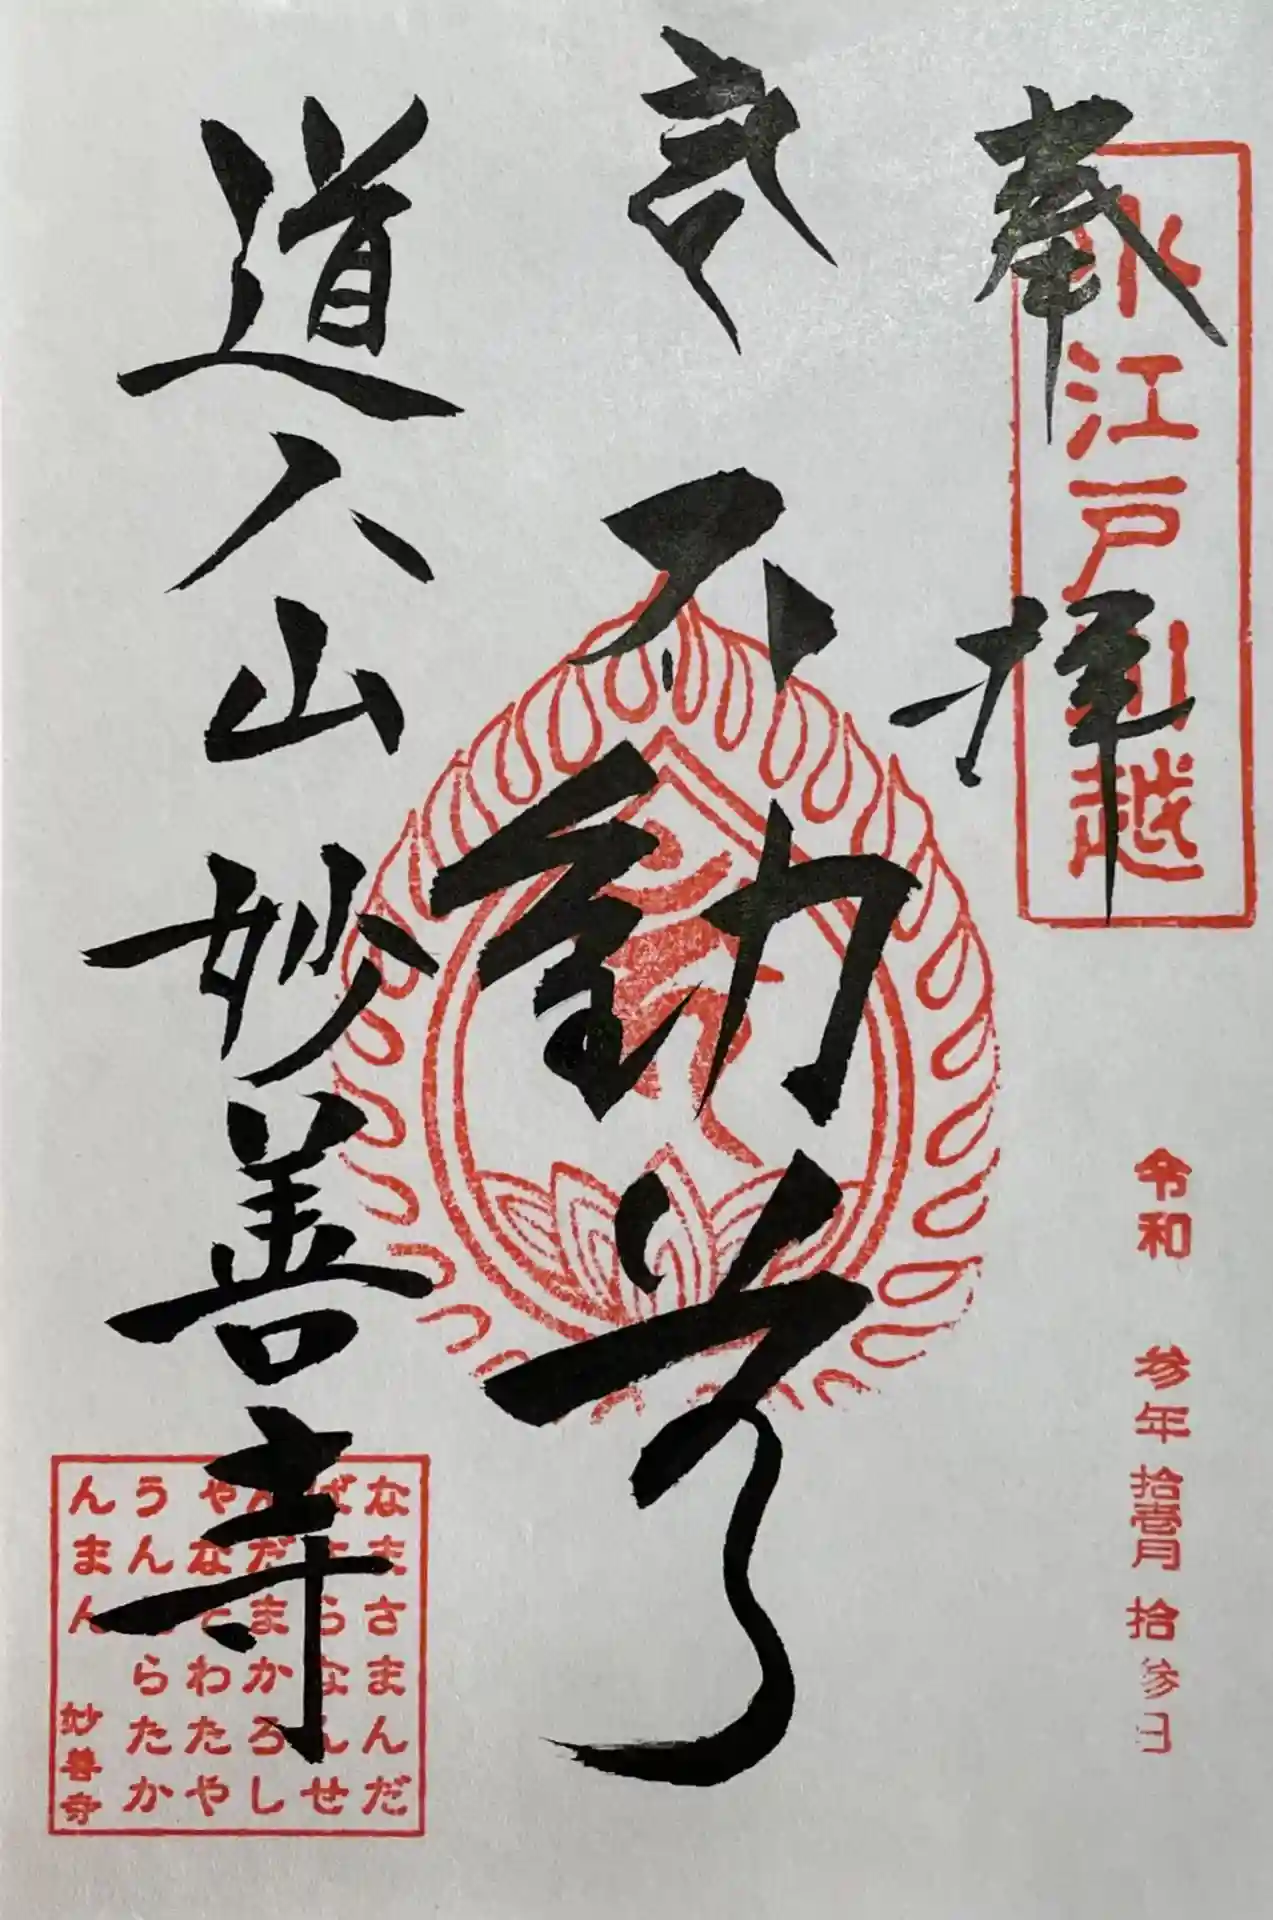 奉拝
小江戸川越
令和 参年 拾壹月 拾参日
不動尊
道人山妙善寺
なまさまんだ
ばさらなんせ
んだまかろし
やなそわたや
うんたらたか
んまん 妙善寺